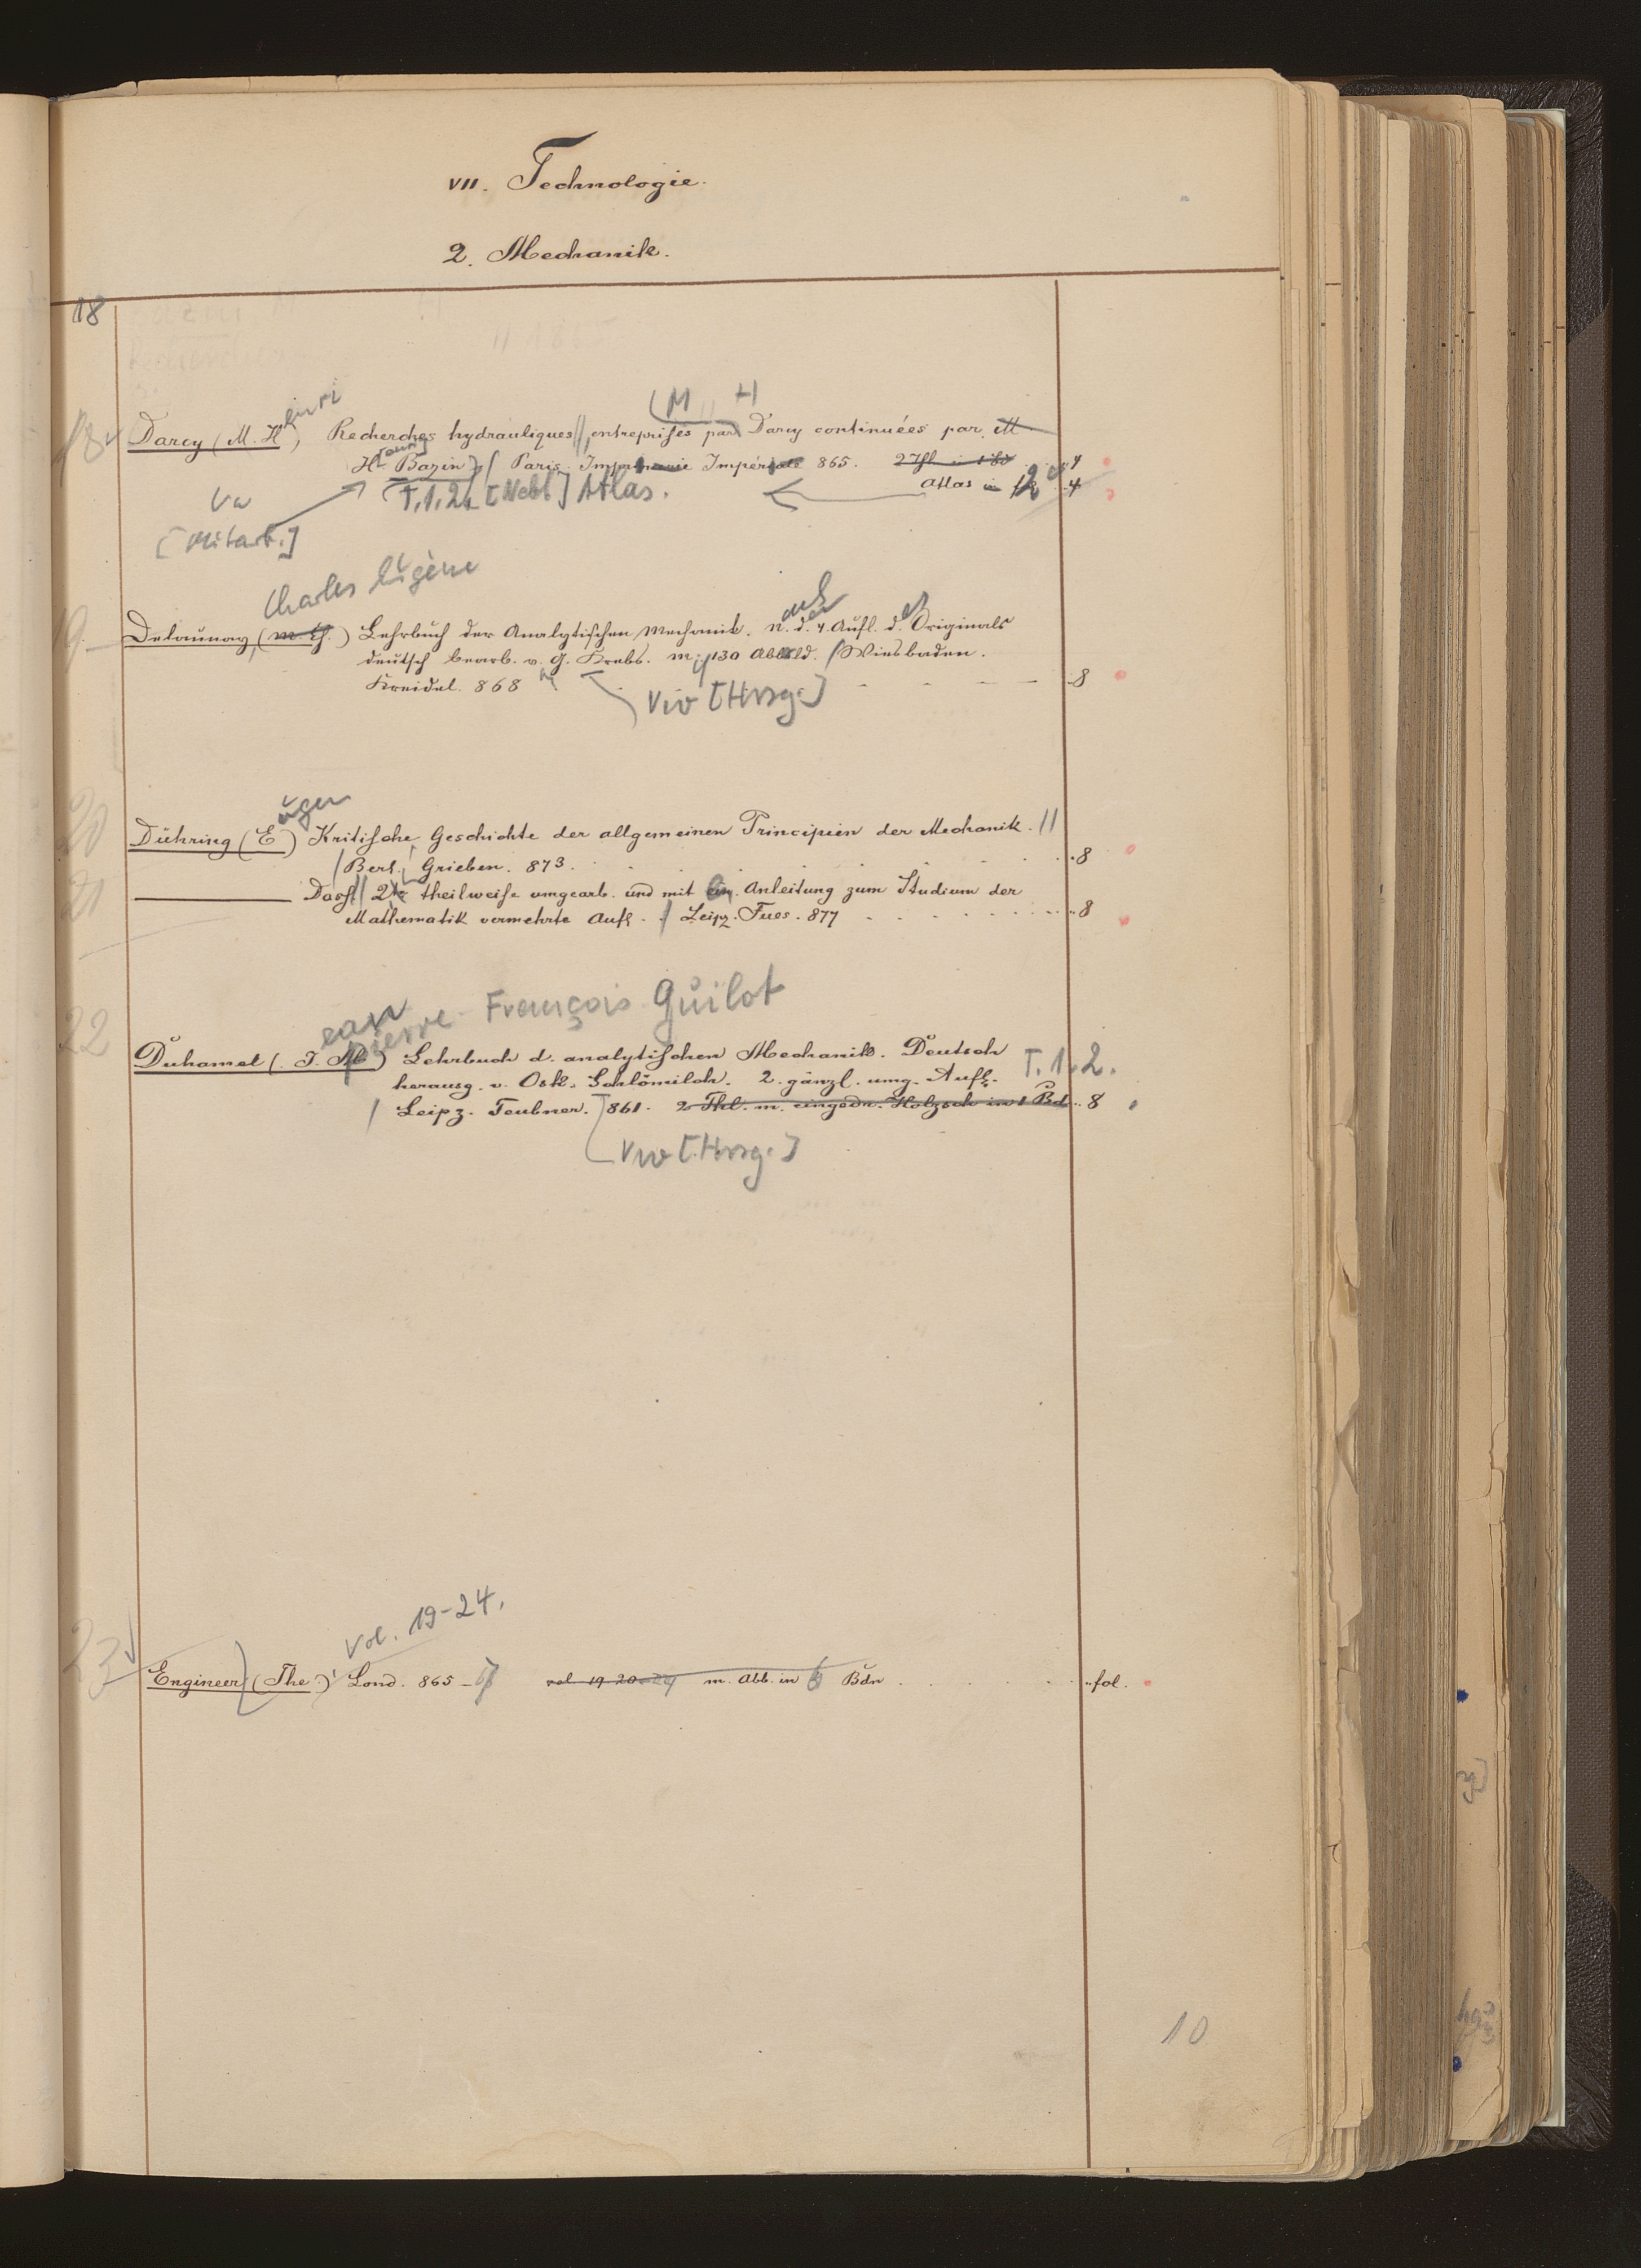 VII. Technologie.
2. Mechanik.
18
enri
(M H
18 Darcy (M. H) Recherches hydrauliques || entreprises par Darcy continuées par M
H Bazin) / Paris. Imprimerie Impériale 865. 2 Thl. in 1 Bd 4
Atlas in 4
(T. 1. 2. [Nebt] Atlas.
Vw
[Mitarb.]
Charles Eugène
19. Delaunay, (m. Ch.) Lehrbuch der Analytischen Mechanik. n. d. 4. Aufl. d. Originals
deutsch bearb. v. G. Krebs. m. 130 Abbild. / Wiesbaden.
Kreidel. 868 8
Vw [Hrsg.]
ugen
20 Dühring (E) Kritische Geschichte der allgemeinen Principien der Mechanik. ||
/ Berl. Grieben. 873. 8
21 Dass. || 2te theilweise umgearb. und mit ein. Anleitung zum Studium der
Mathematik vermehrte Aufl. / Leipz. Fues. 877 8
ean pierre François Guilot
22 Duhamel (J. M.) Lehrbuch d. analytischen Mechanik. Deutsch T. 1. 2.
herausg. v. Osk. Schlömilch. 2. gänzl. umg. Aufl.
/ Leipz. Teubner. 861. 2 Thl. m. eingedr. Holzsch in 1 Bd. 8
Vw [Hrsg.]
Vol. 19-24.
23 Engineer (The) Lond. 865-67 vol. 19-20-24 m. Abb. in 6 Bdn fol.
10